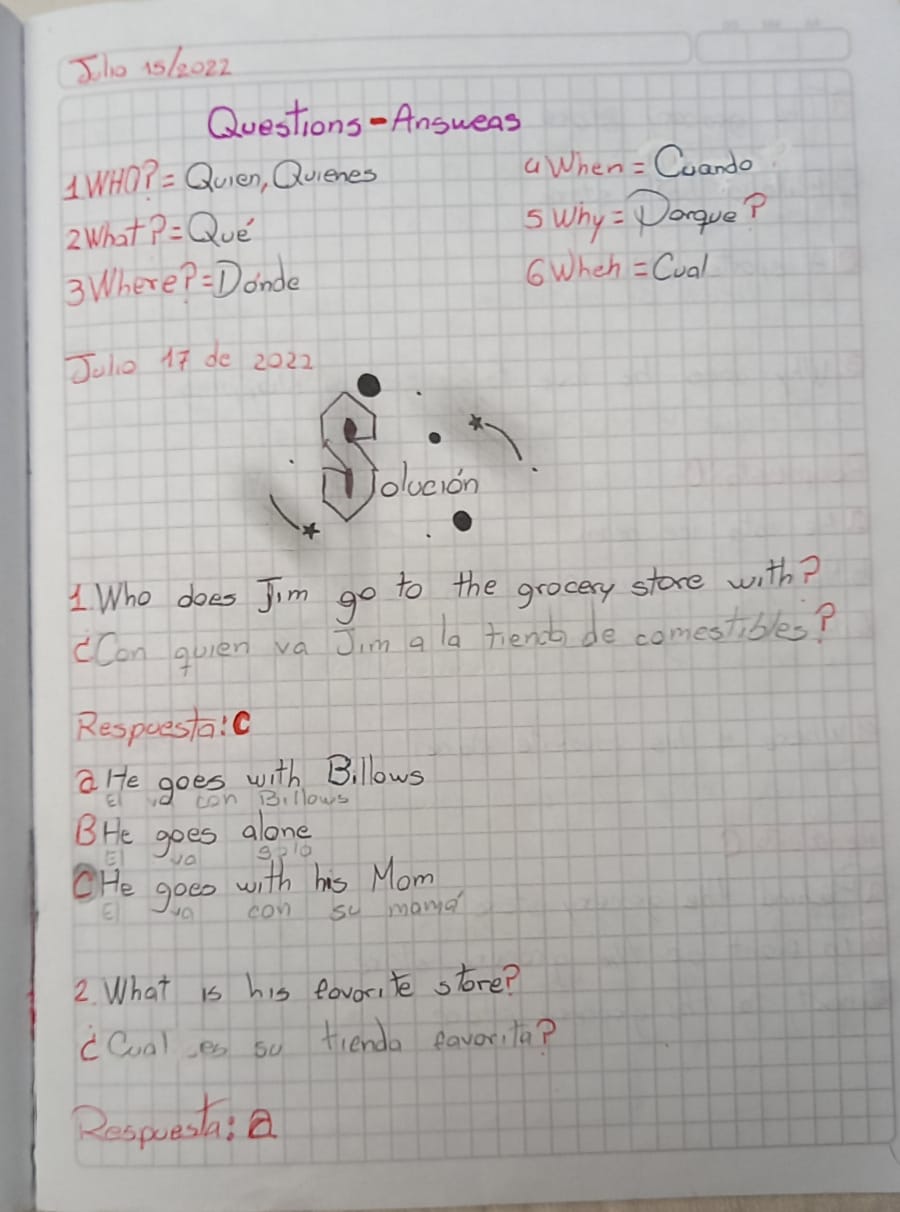 Julio 15/2022
Questions-Answeas
1 WHO?= Quien, Quienes
2 What?= Qué
3 Where?= Dónde
4 When = Cuando
5 Why = Porque?
6 Wheh = Cual
Julio 17 de 2022
Solución
1. Who does Jim go to the grocery store with?
¿Con quien va Jim a la tienda de comestibles?
Respuesta: C
a He goes with Billows
El va con Billows
B He goes alone
El va solo
C He goes with his Mom
El va con su mamá
2. What is his favorite store?
¿Cual es su tienda favorita?
Respuesta: a